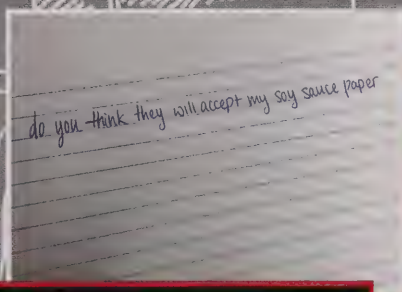 do you think they will accept my soy sauce paper